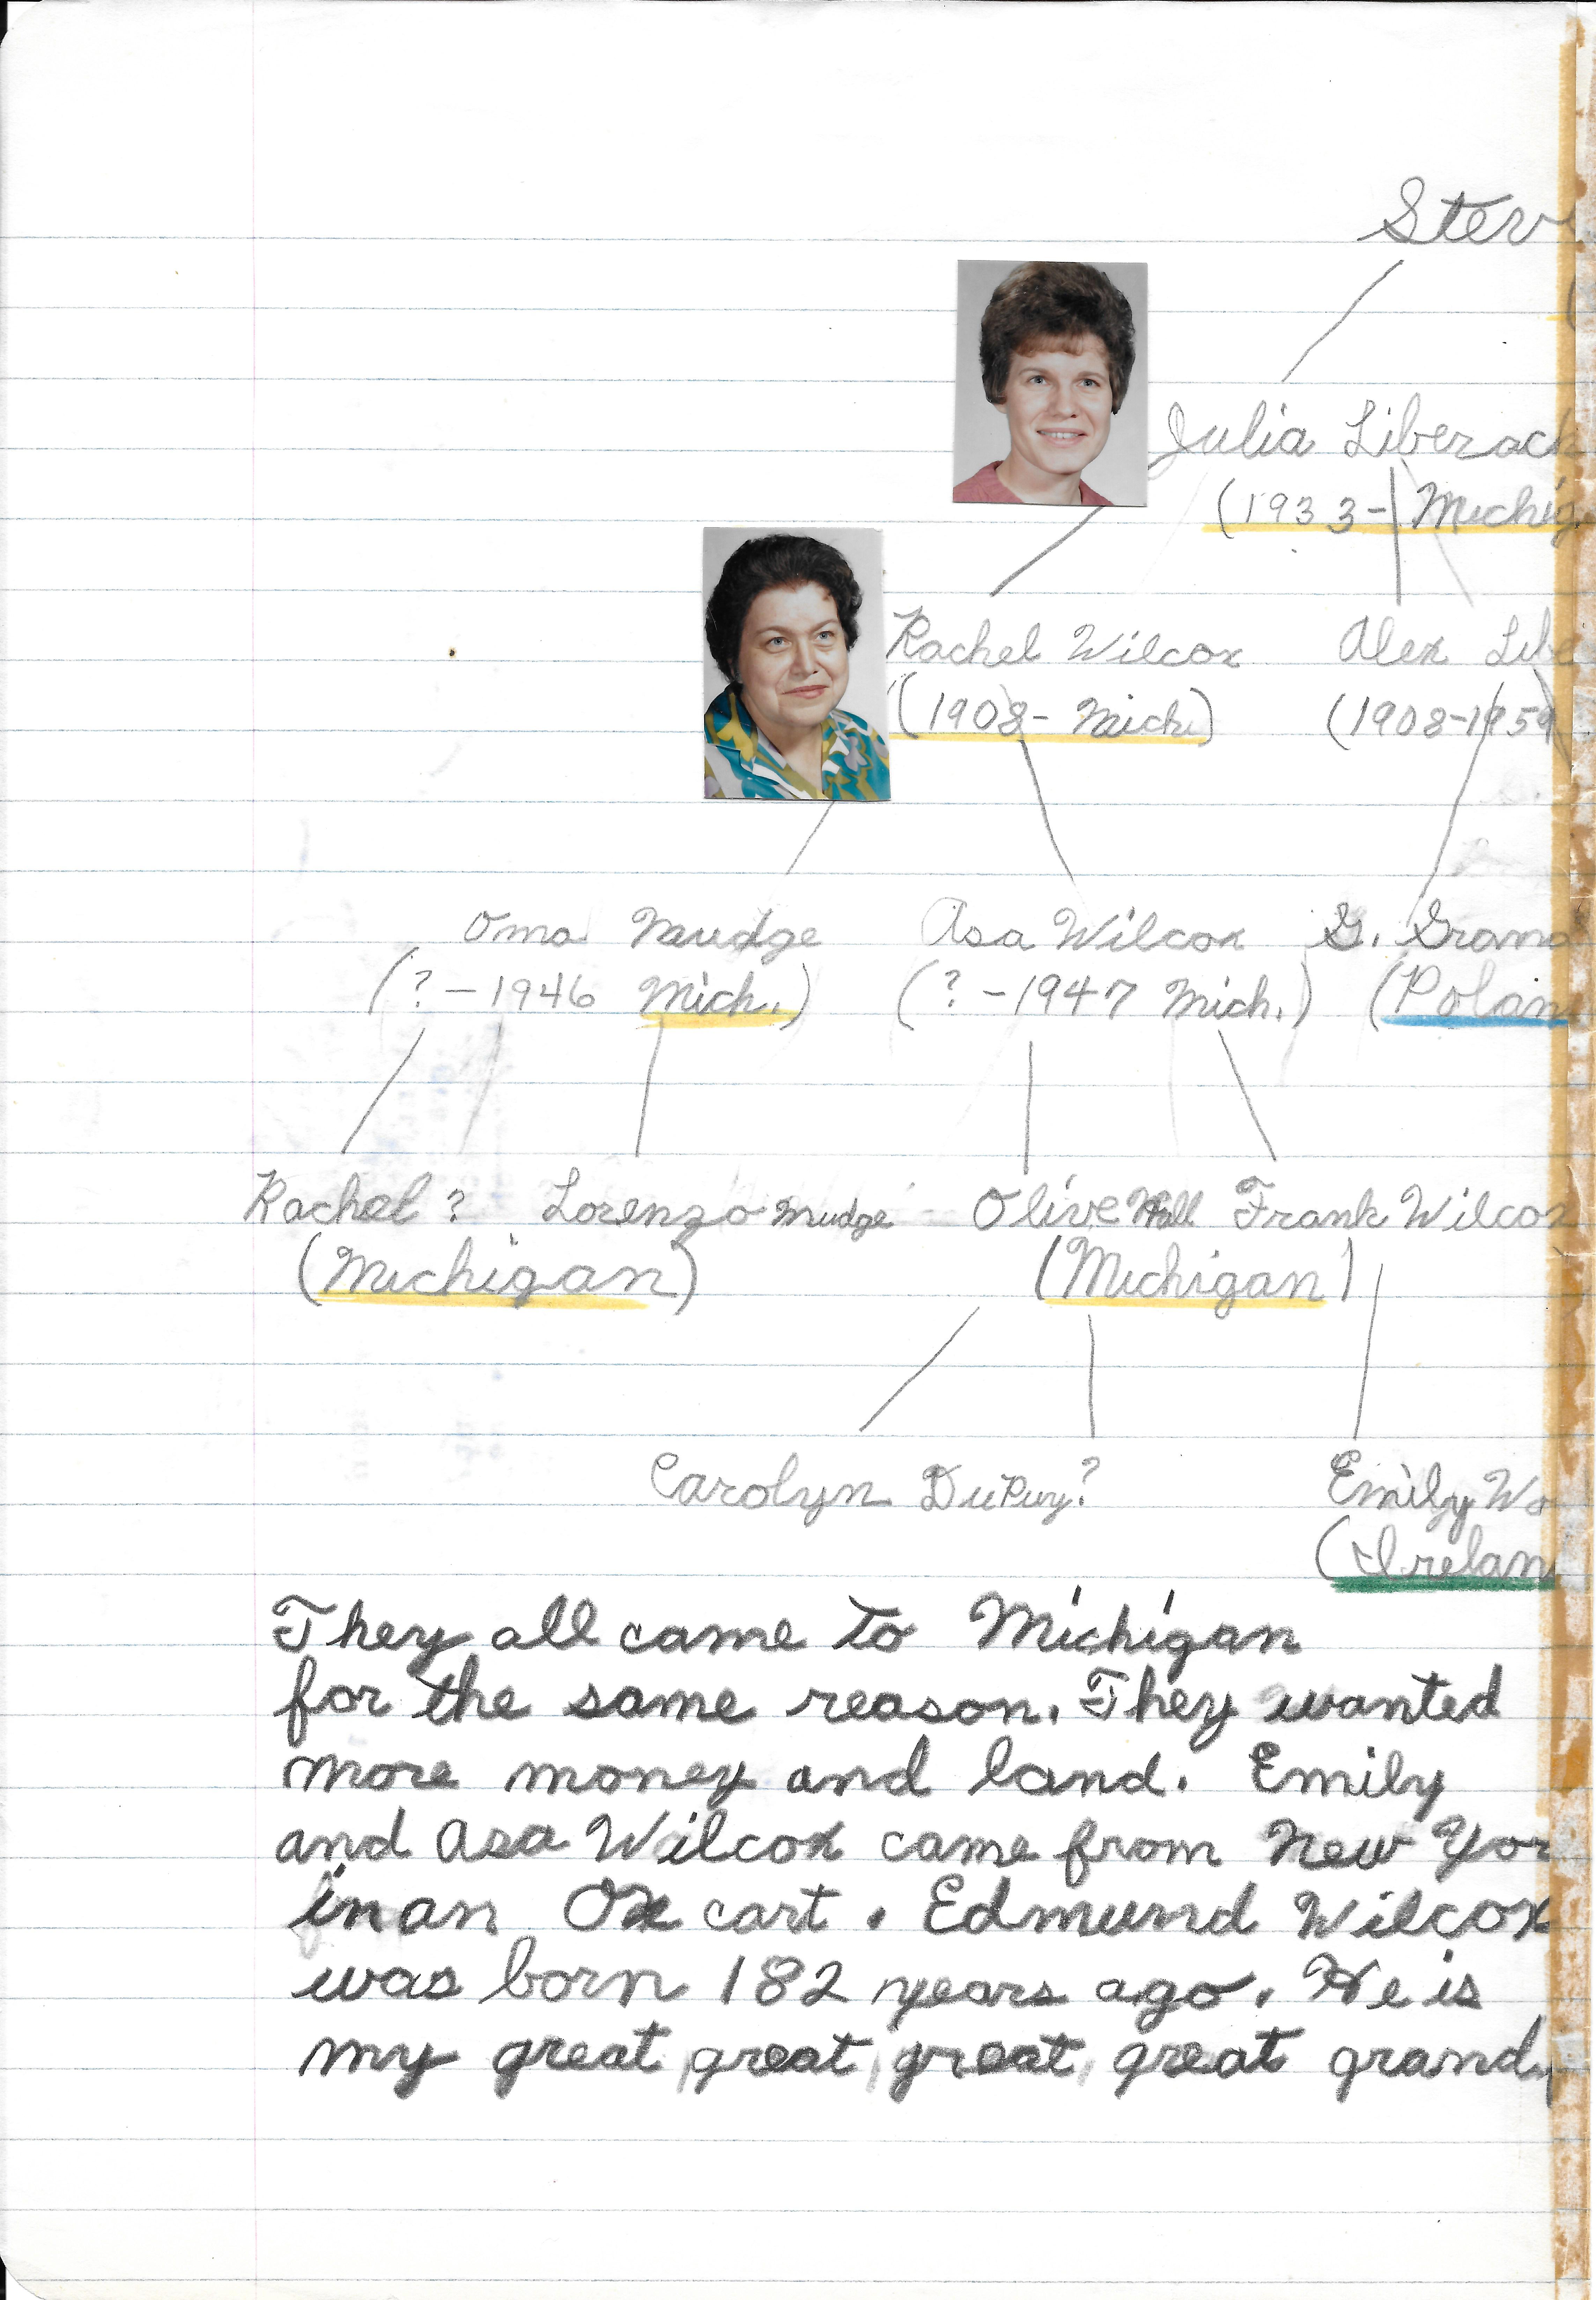 Stev
Julia Liberack
(1933- Michig
Rachel Wilcox Alex Libe
(1908- Mich.) (1908-1959
Oma Mudge Asa Wilcox G. Grand
(?-1946 Mich.) (?-1947 Mich.) (Polan
Rachel ? Lorenzo Mudge Olive Hall Frank Wilcox
(Michigan) (Michigan)
Carolyn DuPuy? Emily Wo
(Irelan
They all came to Michigan
for the same reason. They wanted
more money and land. Emily
and Asa Wilcox came from New Yor
in an Ox cart. Edmund Wilcox
was born 182 years ago. He is
my great, great, great, great grand